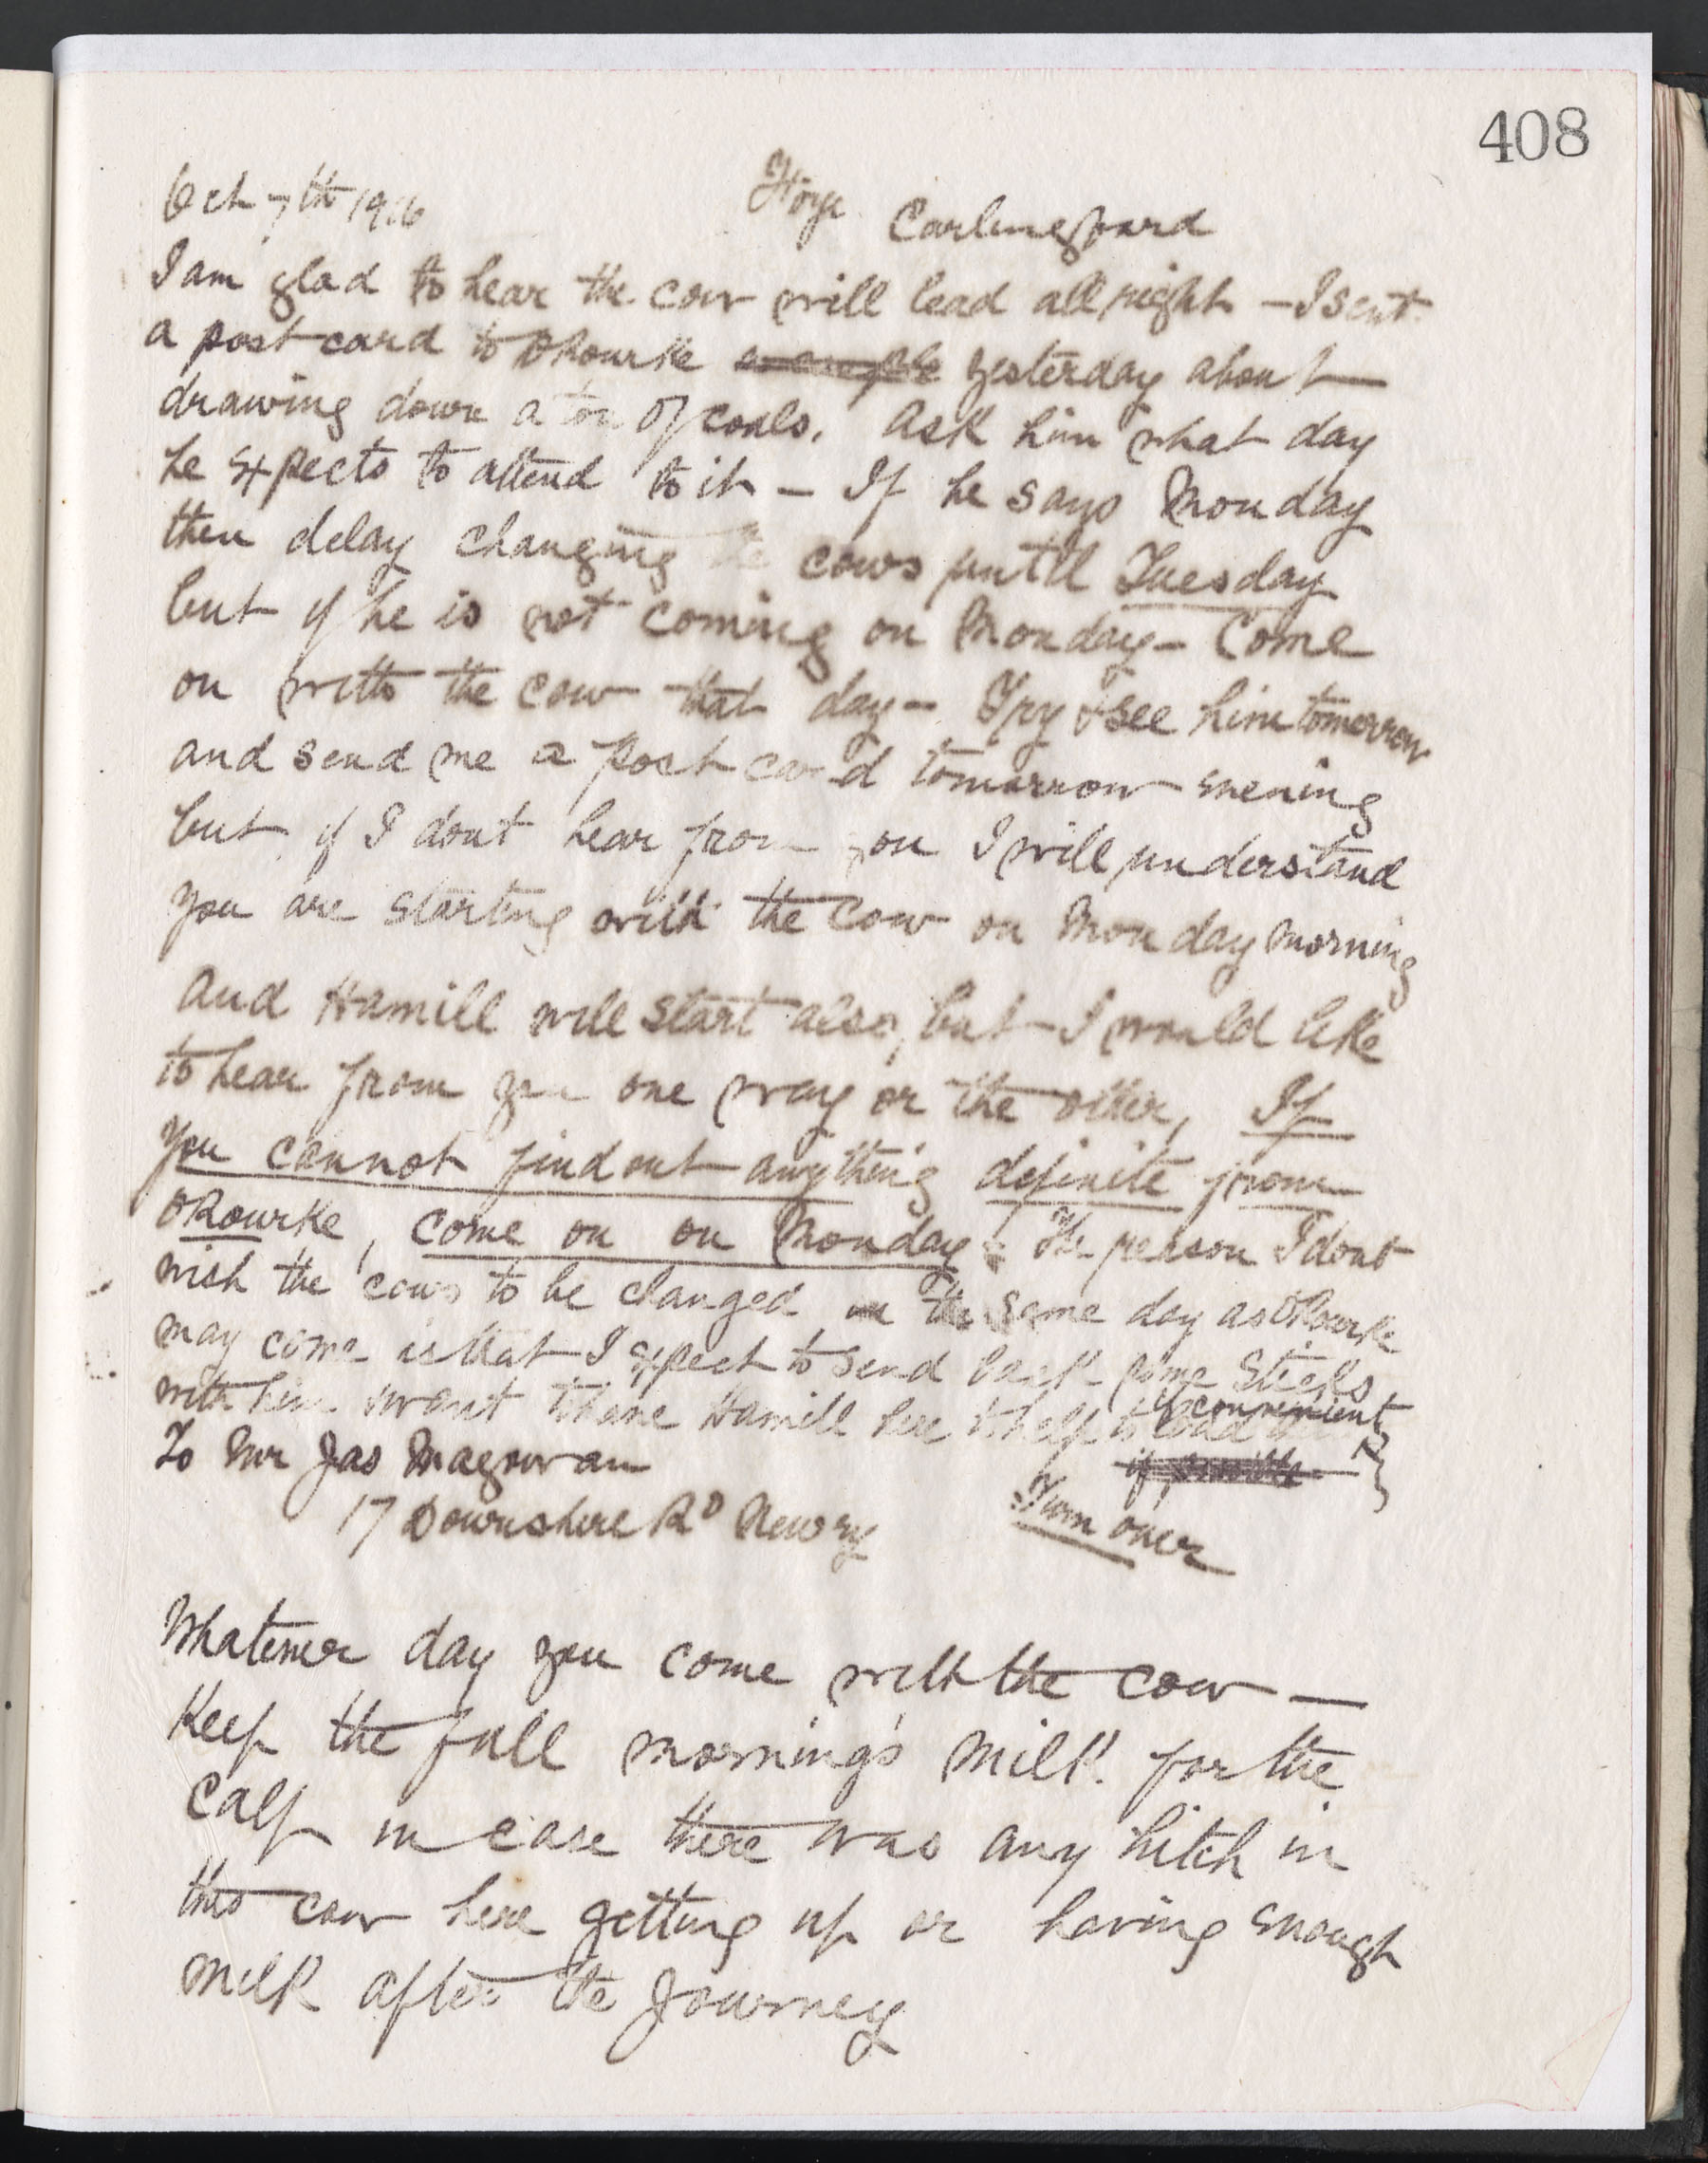 408
Oct 7th 1916 Carlingford
I am glad to hear the cow will lead all right - I sent
a post card to ORourke yesterday about
drawing down a ton of coals. Ask him what day
he expects to attend to it - If he says Monday
then delay changing the cows until Tuesday
but if he is not coming on Monday - Come
on with the cow that day - Try & see him tomorrow
and send me a post card tomorrow evening
but if I dont hear from you I will understand
you are starting with the cow on Monday morning
and Hamill will start also, but I would like
to hear from you one way or the other, If
you cannot find out anything definite from
ORourke, come on on Monday. The reason I dont
wish the cows to be changed on the same day as ORourke
may come is that I expect to send back some sticks
with him & want to have Hamill here to help to load them
if convenient
To Mr Jas Magowan
17 Downshire Rd Newry Turn over
Whatever day you come with the cow -
Keep the full morning's milk for the
calf in case there was any hitch in
this cow here getting up or having enough
milk after the journey